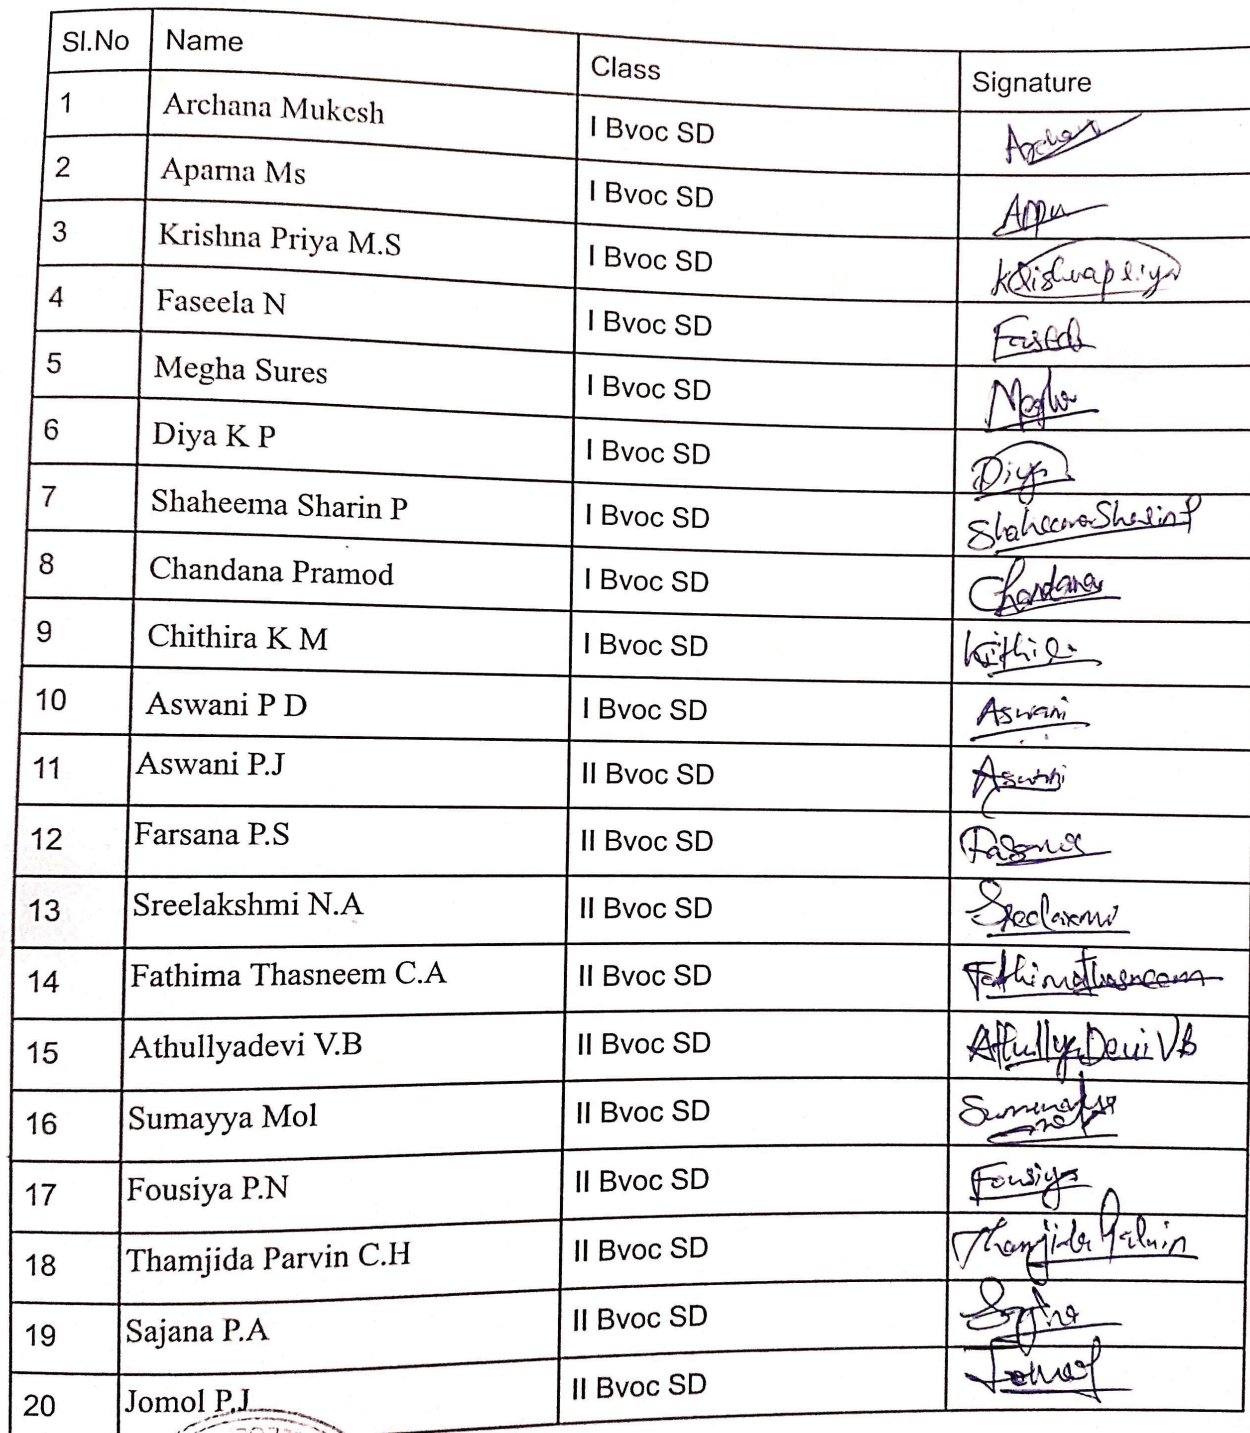 Sl.No Name Class Signature
1 Archana Mukesh I Bvoc SD Archana
2 Aparna Ms I Bvoc SD Appu
3 Krishna Priya M.S I Bvoc SD Krishnapriya
4 Faseela N I Bvoc SD
5 Megha Sures I Bvoc SD Megha
6 Diya K P I Bvoc SD Diya
7 Shaheema Sharin P I Bvoc SD Shaheema Sharin P
8 Chandana Pramod I Bvoc SD Chandana
9 Chithira K M I Bvoc SD
10 Aswani P D I Bvoc SD Aswani
11 Aswani P.J II Bvoc SD Aswani
12 Farsana P.S II Bvoc SD
13 Sreelakshmi N.A II Bvoc SD
14 Fathima Thasneem C.A II Bvoc SD Fathima Thasneem
15 Athullyadevi V.B II Bvoc SD Athullya Devi V B
16 Sumayya Mol II Bvoc SD
17 Fousiya P.N II Bvoc SD Fousiya
18 Thamjida Parvin C.H II Bvoc SD Thamjida Parvin
19 Sajana P.A II Bvoc SD
20 Jomol P.J II Bvoc SD Jomol